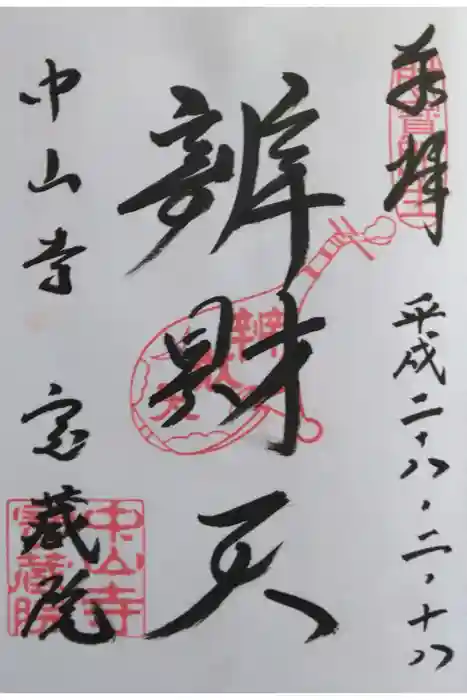 奉拝
平成二十八・二・十八
辨財天
中山寺 宝蔵院
中山寺
宝蔵院